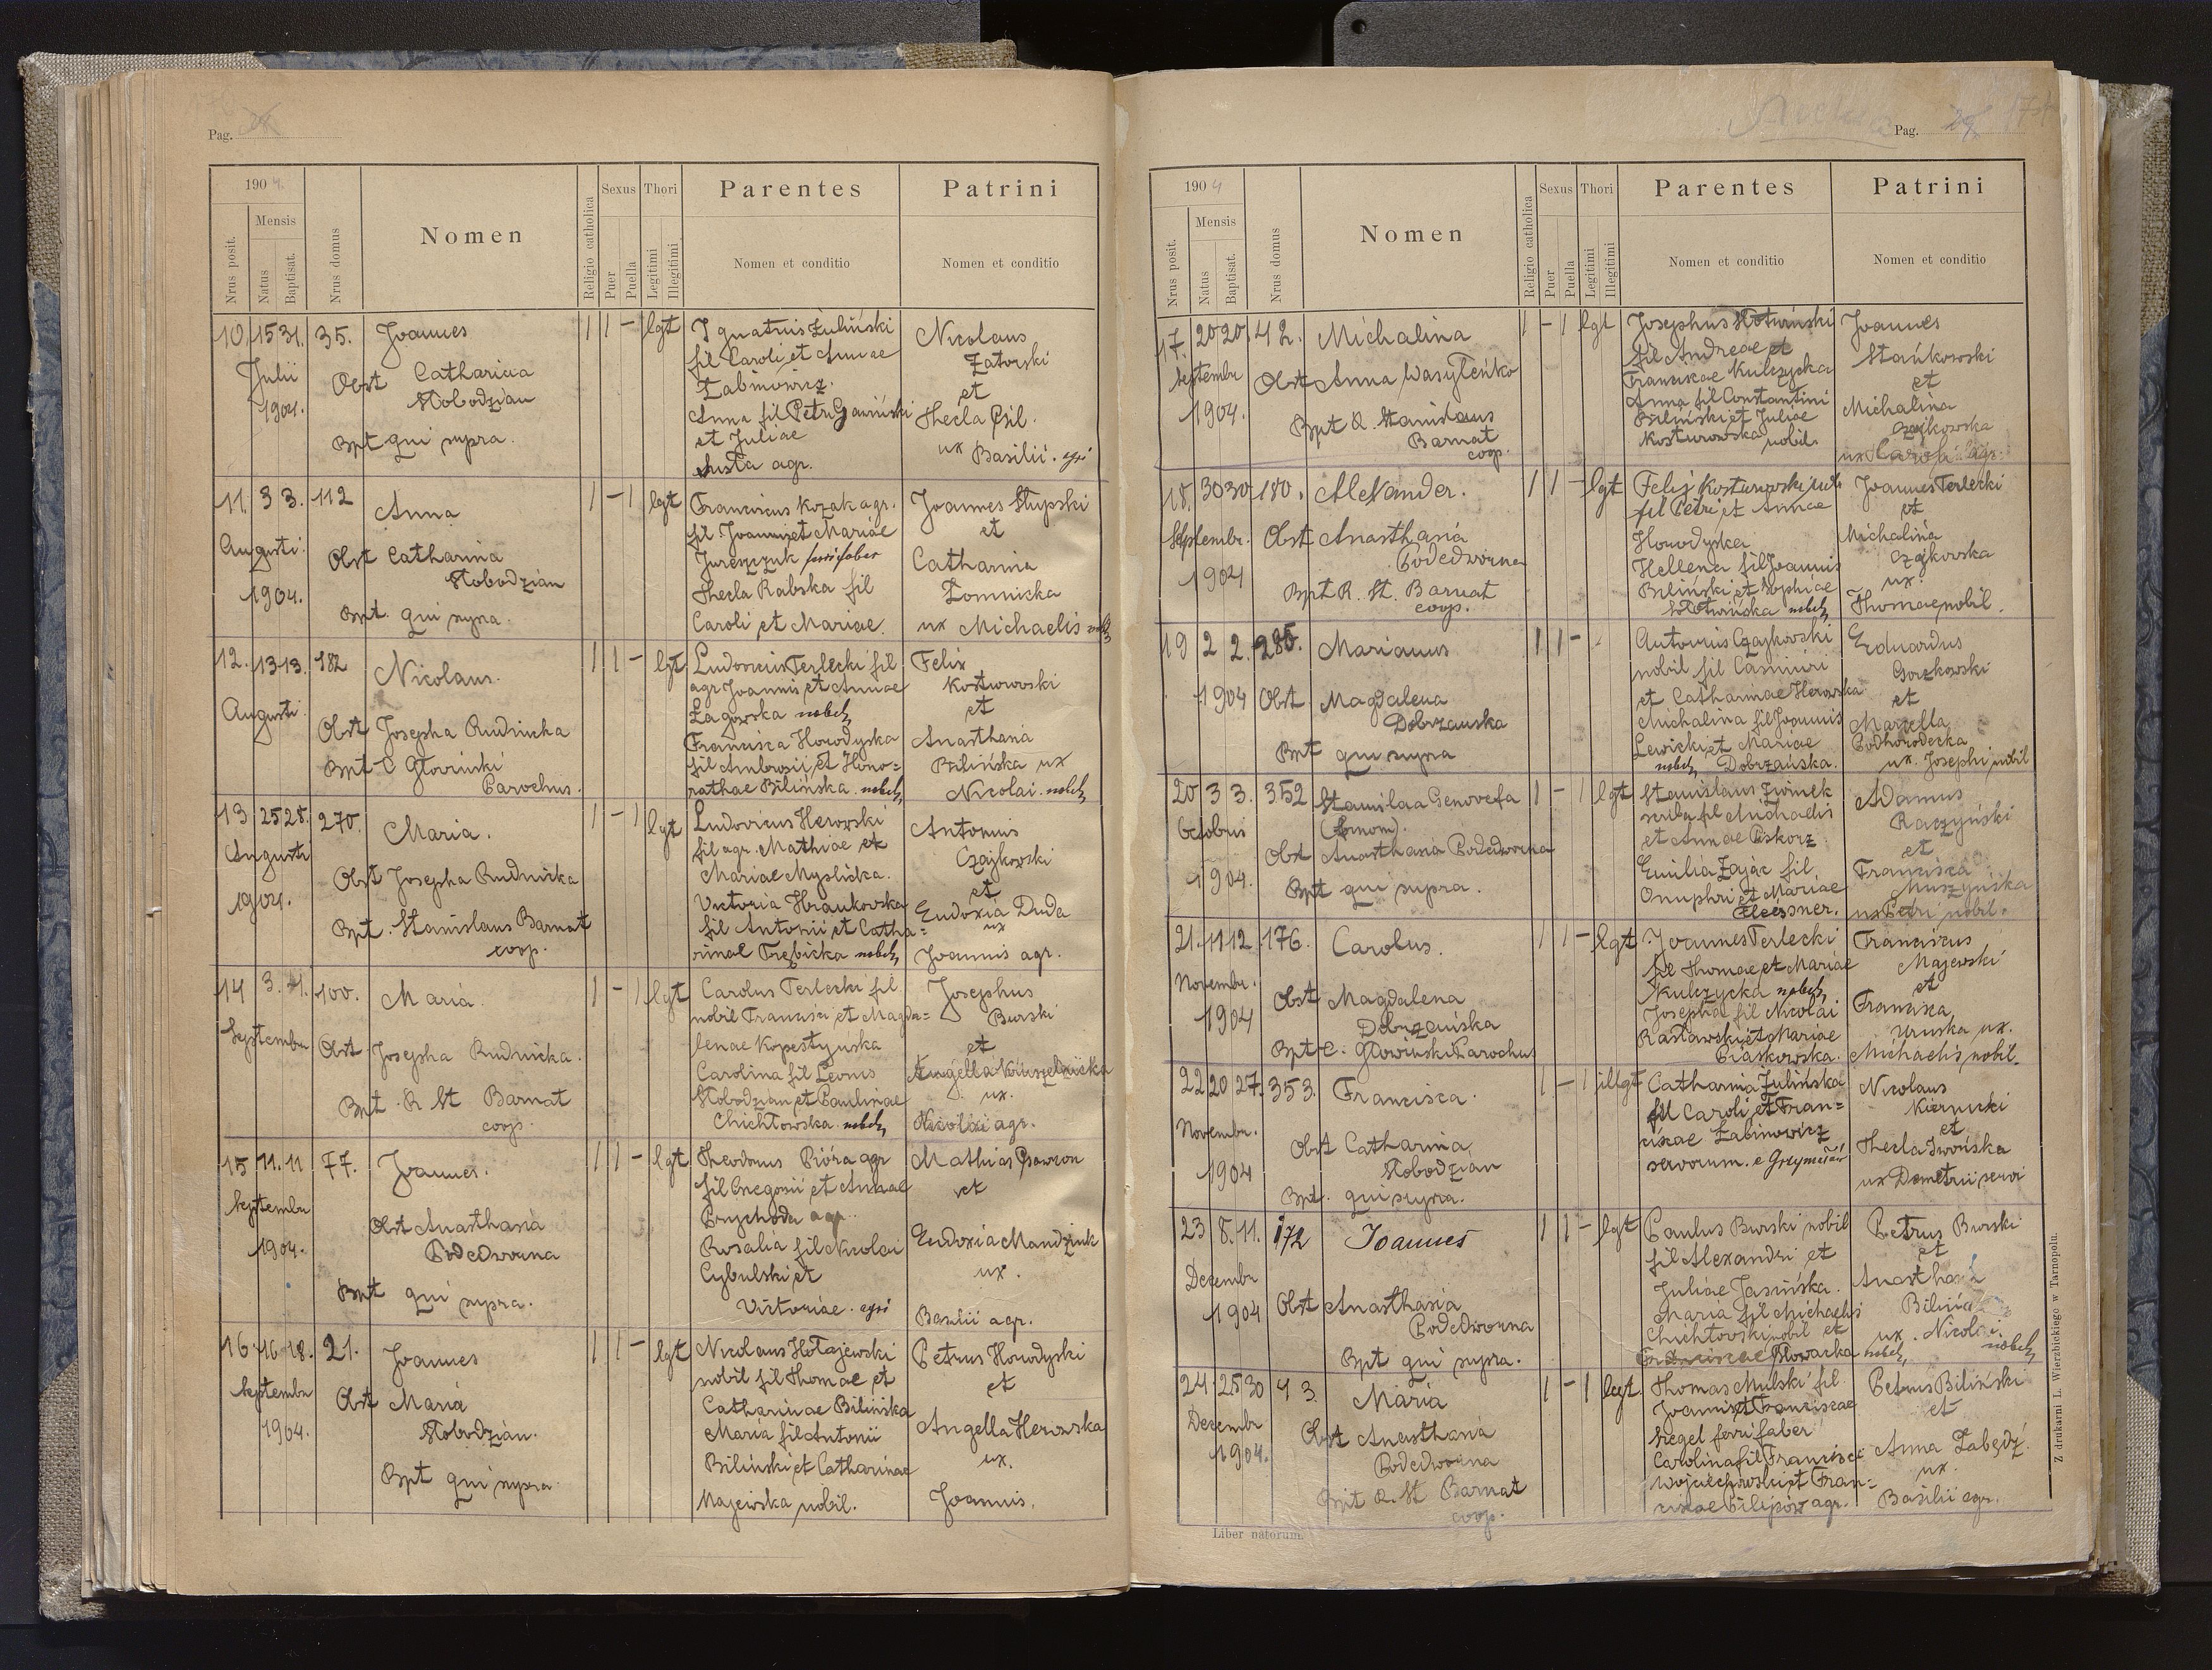 Pag.
1904.
Nrus posit.
Mensis
Natus
Baptisat.
Nrus domus
Nomen
Religio catholica
Sexus
Puer
Puella
Thori
Legitimi
Illegitimi
Parentes
Nomen et conditio
Patrini
Nomen et conditio
10. 15 31. 35. Joannes 1 1 - lgt
Julii
1904.
Obst Catharina
Slobodzian
Bpt qui supra.
Ignatius Zuliński
fil Caroli et Annae
Łabinowicz.
Anna fil Petri
et Juliae
Susta agr.
Nicolaus
Zatorski
et
Thecla
ux Basilii. agri
11. 3 3. 112 Anna 1 - 1 lgt
Augusti
1904.
Obst Catharina
Slobodzian
Bpt. qui supra.
Franciscus Kozak agr.
fil Joannis et Mariae
Jureszczuk ferrifaber
Thecla Rabska fil
Caroli et Mariae.
Joannes Slupski
et
Catharina
Łomnicka
ux Michaelis
12. 13 13. 182 Nicolaus. 1 1 - lgt
Augusti
Obst Josepha Rudnicka
Bpt C Głowiński
Parochus.
Ludovicus Terlecki fil
agr Joannis et Annae
Łagowska nobil
Francisca Horodyska
fil Ambrosii et Hono=
rathae Bilińska. nobil
Felix
Kosturowski
et
Anasthasia
Bilińska ux
Nicolai. nobil
13 25 28. 270. Maria. 1 - 1 lgt
Augusti
1904.
Obst Josepha Rudnicka
Bpt. Stanislaus Barnat
coop.
Ludovicus Herowski
fil agr. Mathiae et
Mariae Myslicka.
Victoria Hrankowska
fil Antonii et Catha=
rinae Trębicka nobil
Antonius
Czajkowski
et
Eudoxia Duda
ux
Joannis agr.
14 3. 4. 100. Maria. 1 - 1 lgt
Septembr
Obst Josepha Rudnicka.
Bpt. R St Barnat
coop.
Carolus Terlecki fil
nobil Francisci et Magda=
lenae Kopestyńska
Carolina fil Leonis
Slobodzian et Paulinae
Chichłowska nobil
Josephus
Burski
et
Angella
ux.
Nicolai agr.
15 11. 11 77. Joannes. 1 1 - lgt
Septembr
1904.
Obst Anasthasia
Podedworna
Bpt qui supra.
Theodorus Pióra agr
fil Gregorii et Annae
Prychoda agr.
Rosalia fil Nicolai
Cybulski et
Victoriae. agri
Mathias Gawron
et
Eudoxia Mandziuk
ux.
Basilii agr.
16 16 18. 21. Joannes 1 1 - lgt
Septembr
1904.
Obst Maria
Slobodzian.
Bpt qui supra.
Nicolaus Hołajewski
nobil fil Thomae et
Catharinae Bilińska
Maria fil Antonii
Biliński et Catharinae
Majewska nobil.
Petrus Horodyski
et
Angella Herowska
ux.
Joannis.
Pag.
1904
Nrus posit.
Mensis
Natus
Baptisat.
Nrus domus
Nomen
Religio catholica
Sexus
Puer
Puella
Thori
Legitimi
Illegitimi
Parentes
Nomen et conditio
Patrini
Nomen et conditio
17. 20 20. 42. Michalina 1 - 1 lgt
Septembr
1904.
Obst Anna Wasyleńko
Bpt R. Stanislaus
Barnat
coop.
Josephus Słotwiński
fil Andreae et
Franciscae Kulczycka
Anna fil Constantini
Biliński et Juliae
Kosturowska nobil.
Joannes
Stańkowski
et
Michalina
Czajkowska
ux Caroli agr.
18. 30 30 180. Alexander. 1 1 - lgt
Septembr.
1904
Obst Anasthasia
Podedworna
Bpt R. St. Barnat
coop.
Felix Kosturowski nob
fil Petri et Annae
Horodyska
Hellena fil Joannis
Biliński et Sophiae
Słotwińska nobil
Joannes Terlecki
et
Michalina
Czajkowska
ux.
Thomae nobil.
19 2 2. 285. Marianus 1 1 -
1904
Obst Magdalena
Dobrzańska
Bpt qui supra
Antonius Czajkowski
nobil fil Casimiri
et Catharinae Herowska
Michalina fil Joannis
Lewicki et Mariae
nobil Dobrzańska.
Eduardus
Gorzkowski
et
Marcella
Podhorodecka
ux. Josephi nobil
20 3 3. 352 Stanislaa Genovefa 1 - 1 lgt
Octobris
1904.
Obst Anasthasia Podedworna
Bpt qui supra.
Stanislaus Zwinek
scriba fil Michaelis
et Annae Piskorz
Emilia Zając fil
Onuphri et Mariae
Adamus
Raczyński
et
Francisca
Muszyńska
ux Petri nobil.
21. 11 12. 176. Carolus. 1 1 - lgt
Novembr.
1904
Obst Magdalena
Dobrzańska
Bpt C. Głowiński Parochus
Joannes Terlecki
fil Thomae et Mariae
Kulczycka nobil
Josepha fil Nicolai
Rastawski et Mariae
Piaskowska.
Franciscus
Majewski
et
Francisca
Uruska ux.
Michaelis nobil.
22 20 27. 353. Francisca. 1 - 1 illgt
Novembr.
1904
Obst Catharina
Slobodzian
Bpt. qui supra.
Catharina Zulińska
fil Caroli et Fran=
ciscae Łabinowicz
servorum. e
Nicolaus
Kiernicki
et
Thecla Iwońska
ux Demetrii servi
23 8. 11. 172 Joannes 1 1 - lgt
Dezembr
1904
Obst Anasthasia
Podedworna
Bpt qui supra.
Paulus Burski nobil
fil Alexandri et
Juliae Jasińska.
Maria fil Michaelis
Chichłowski nobil et
Franciscae Słowacka nobil
Petrus Burski
et
Anasthasia
ux. Nicolai.
nobil
24 25 30 43 Maria 1 - 1 legt.
Dezembr
1904.
Obst Anasthasia
Podedworna
Bpt R. St Barnat
coop.
Thomas Mulski fil
Joannis et Franciscae
Szegel ferrifaber
Carolina fil Francisci
Wojciechowski et Fran=
ciscae Pilipów agr.
Petrus Biliński
et
Anna Łabędź
ux.
Basilii agr.
Liber natorum.
Z drukarni L. Wierzbickiego w Tarnopolu.